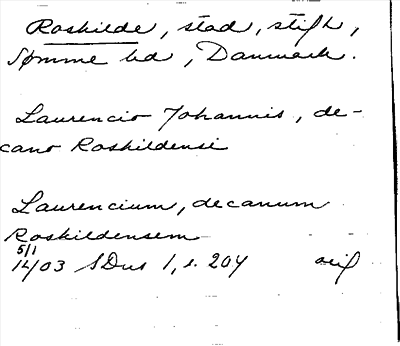 Roskilde, stad, stift,
Sømme hd, Danmark.
Laurencio Johannis, de-
cano Roskildensi
Laurencium, decanum
Roskildensem
5/1
1403 SDns 1, s. 204 orig